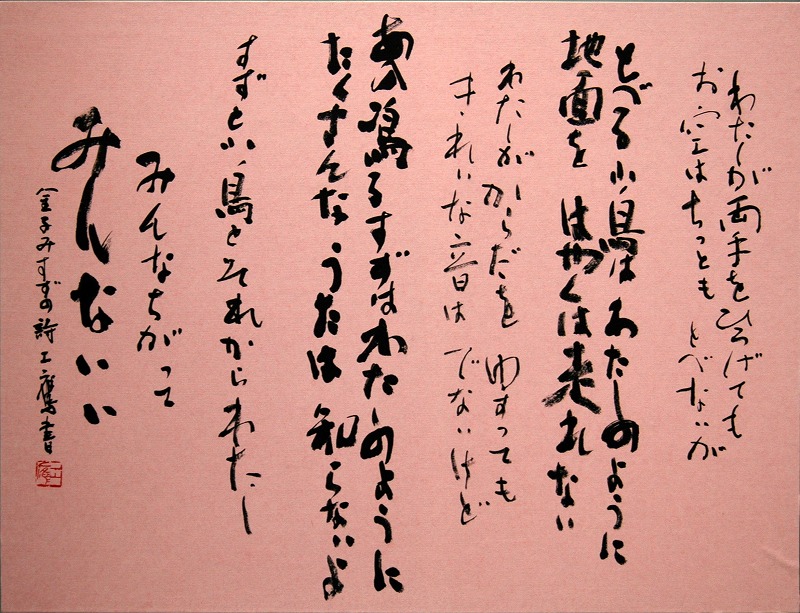 わたしが両手をひろげても
お空はちっともとべないが
とべる小鳥はわたしのように
地面をはやくは走れない
わたしがからだをゆすっても
きれいな音はでないけど
あの鳴るすずはわたしのように
たくさんなうたは知らないよ
すずと小鳥とそれからわたし
みんなちがって
みんないい
金子みすずの詩 工鷹書